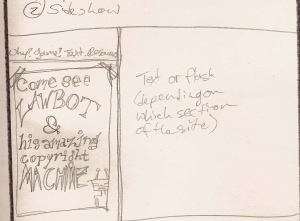 ② Sideshow
Why? Game! Text. Resources
Come see
LAWBOT
&
his amazing
copyright
MACHINE
Text or flash
(depending on
which section
of the site)